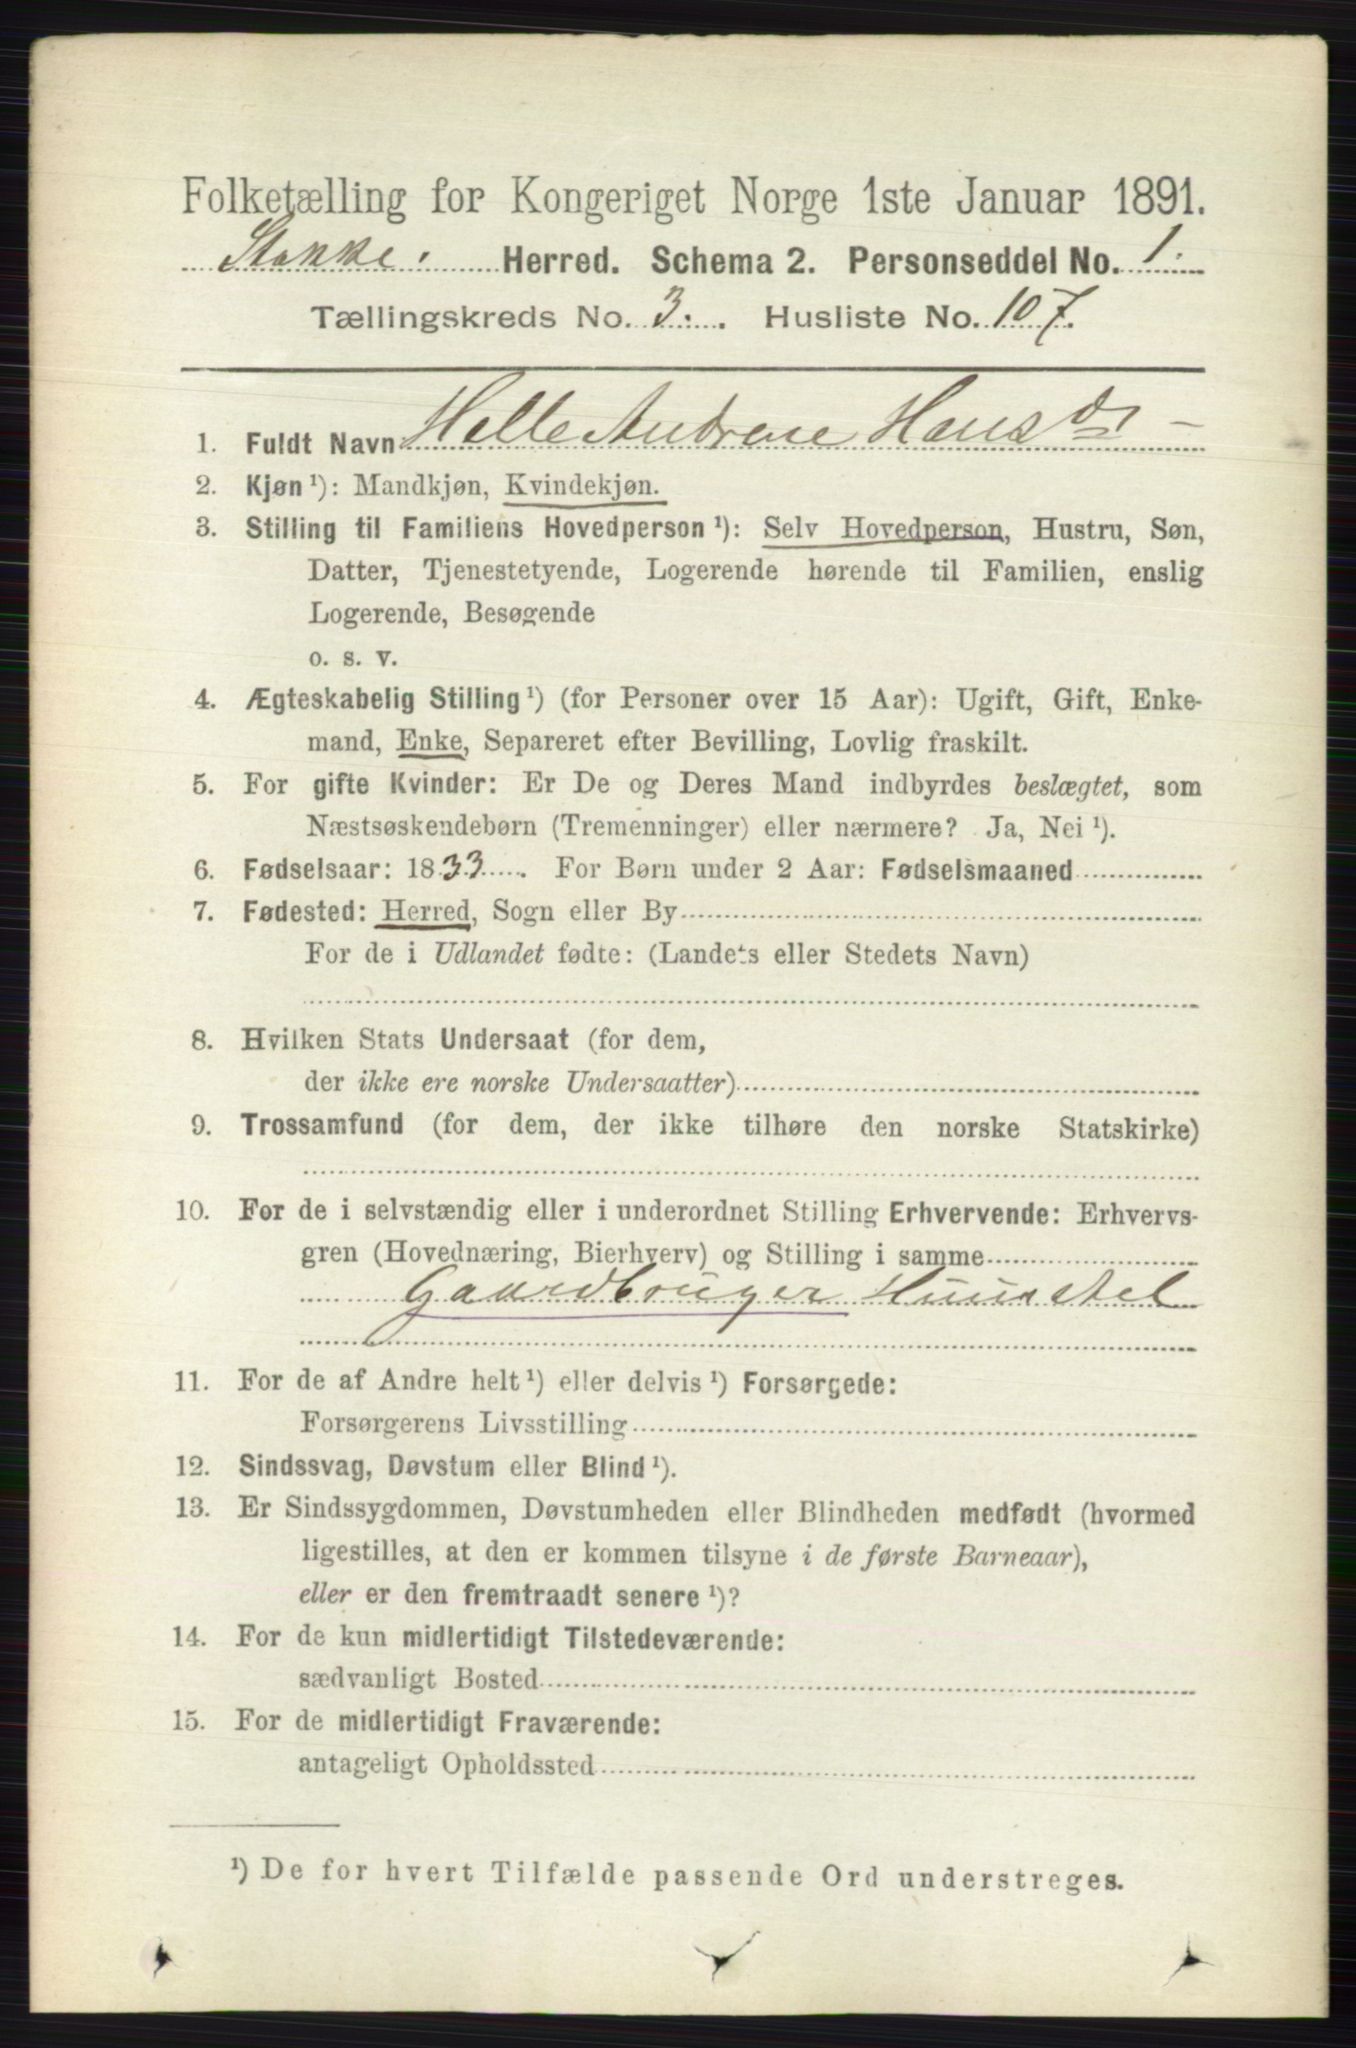 Folketælling for Kongeriget Norge 1ste Januar 1891.
Stokke. Herred. Schema 2. Personseddel No. 1.
Tællingskreds No. 3. Husliste No. 107.
1. Fuldt Navn Helle Andrene Hansdr
2. Kjøn ¹): Mandkjøn, Kvindekjøn.
3. Stilling til Familiens Hovedperson ¹): Selv Hovedperson, Hustru, Søn,
Datter, Tjenestetyende, Logerende hørende til Familien, enslig
Logerende, Besøgende
o. s. v.
4. Ægteskabelig Stilling ¹) (for Personer over 15 Aar): Ugift, Gift, Enke-
mand, Enke, Separeret efter Bevilling, Lovlig fraskilt.
5. For gifte Kvinder: Er De og Deres Mand indbyrdes beslægtet, som
Næstsøskendebørn (Tremenninger) eller nærmere? Ja, Nei ¹).
6. Fødselsaar: 1833. For Børn under 2 Aar: Fødselsmaaned
7. Fødested: Herred, Sogn eller By
For de i Udlandet fødte: (Landets eller Stedets Navn)
8. Hvilken Stats Undersaat (for dem,
der ikke ere norske Undersaatter)
9. Trossamfund (for dem, der ikke tilhøre den norske Statskirke)
10. For de i selvstændig eller i underordnet Stilling Erhvervende: Erhvervs-
gren (Hovednæring, Bierhverv) og Stilling i samme
Gaardbruger
11. For de af Andre helt ¹) eller delvis ¹) Forsørgede:
Forsørgerens Livsstilling
12. Sindssvag, Døvstum eller Blind ¹).
13. Er Sindssygdommen, Døvstumheden eller Blindheden medfødt (hvormed
ligestilles, at den er kommen tilsyne i de første Barneaar),
eller er den fremtraadt senere ¹)?
14. For de kun midlertidigt Tilstedeværende:
sædvanligt Bosted
15. For de midlertidigt Fraværende:
antageligt Opholdssted
¹) De for hvert Tilfælde passende Ord understreges.